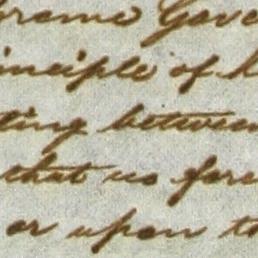 preme Gove
inciple of
ting between
that no fore
or upon t